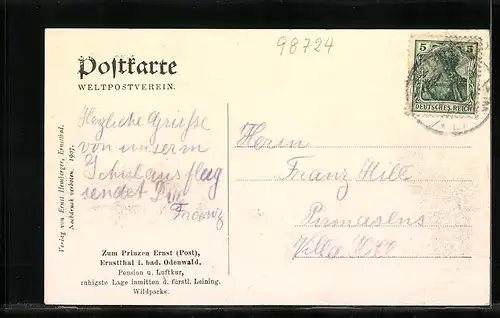 98724
Postkarte
WELTPOSTVEREIN.
5 5
DEUTSCHES REICH
Herzliche Grüsse
von unserm
Schulausflug
sendet Dir
Franz
Herrn
Franz Hill
Pirmasens
Villa
Verlag von Ernst Hemberger, Ernstthal.
Nachdruck verboten. 1907.
Zum Prinzen Ernst (Post),
Ernstthal i. bad. Odenwald.
Pension u. Luftkur,
ruhigste Lage inmitten d. fürstl. Leining.
Wildparks.